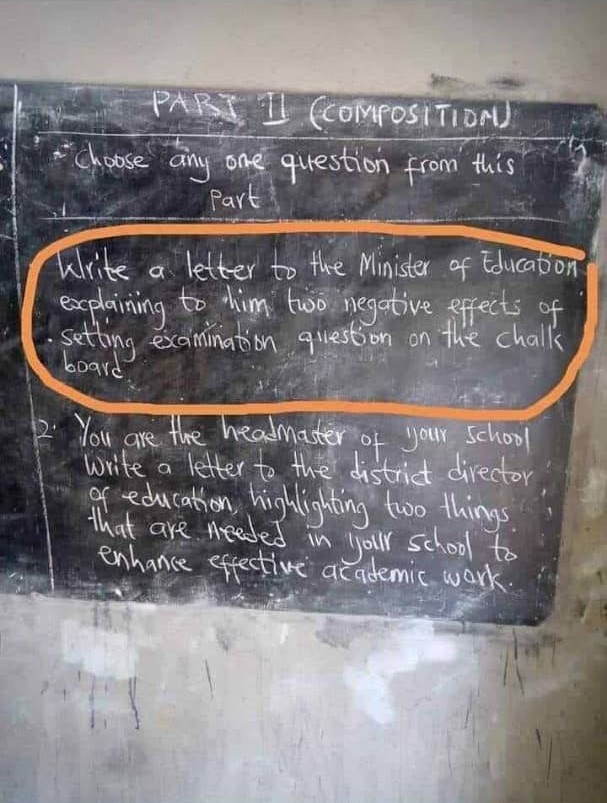 PART II (COMPOSITION)
Choose any one question from this
Part
Write a letter to the Minister of Education
explaining to him two negative effects of
setting examination question on the chalk
board
2. You are the headmaster of your school
Write a letter to the district director
of education, highlighting two things
that are needed in your school to
enhance effective academic work.